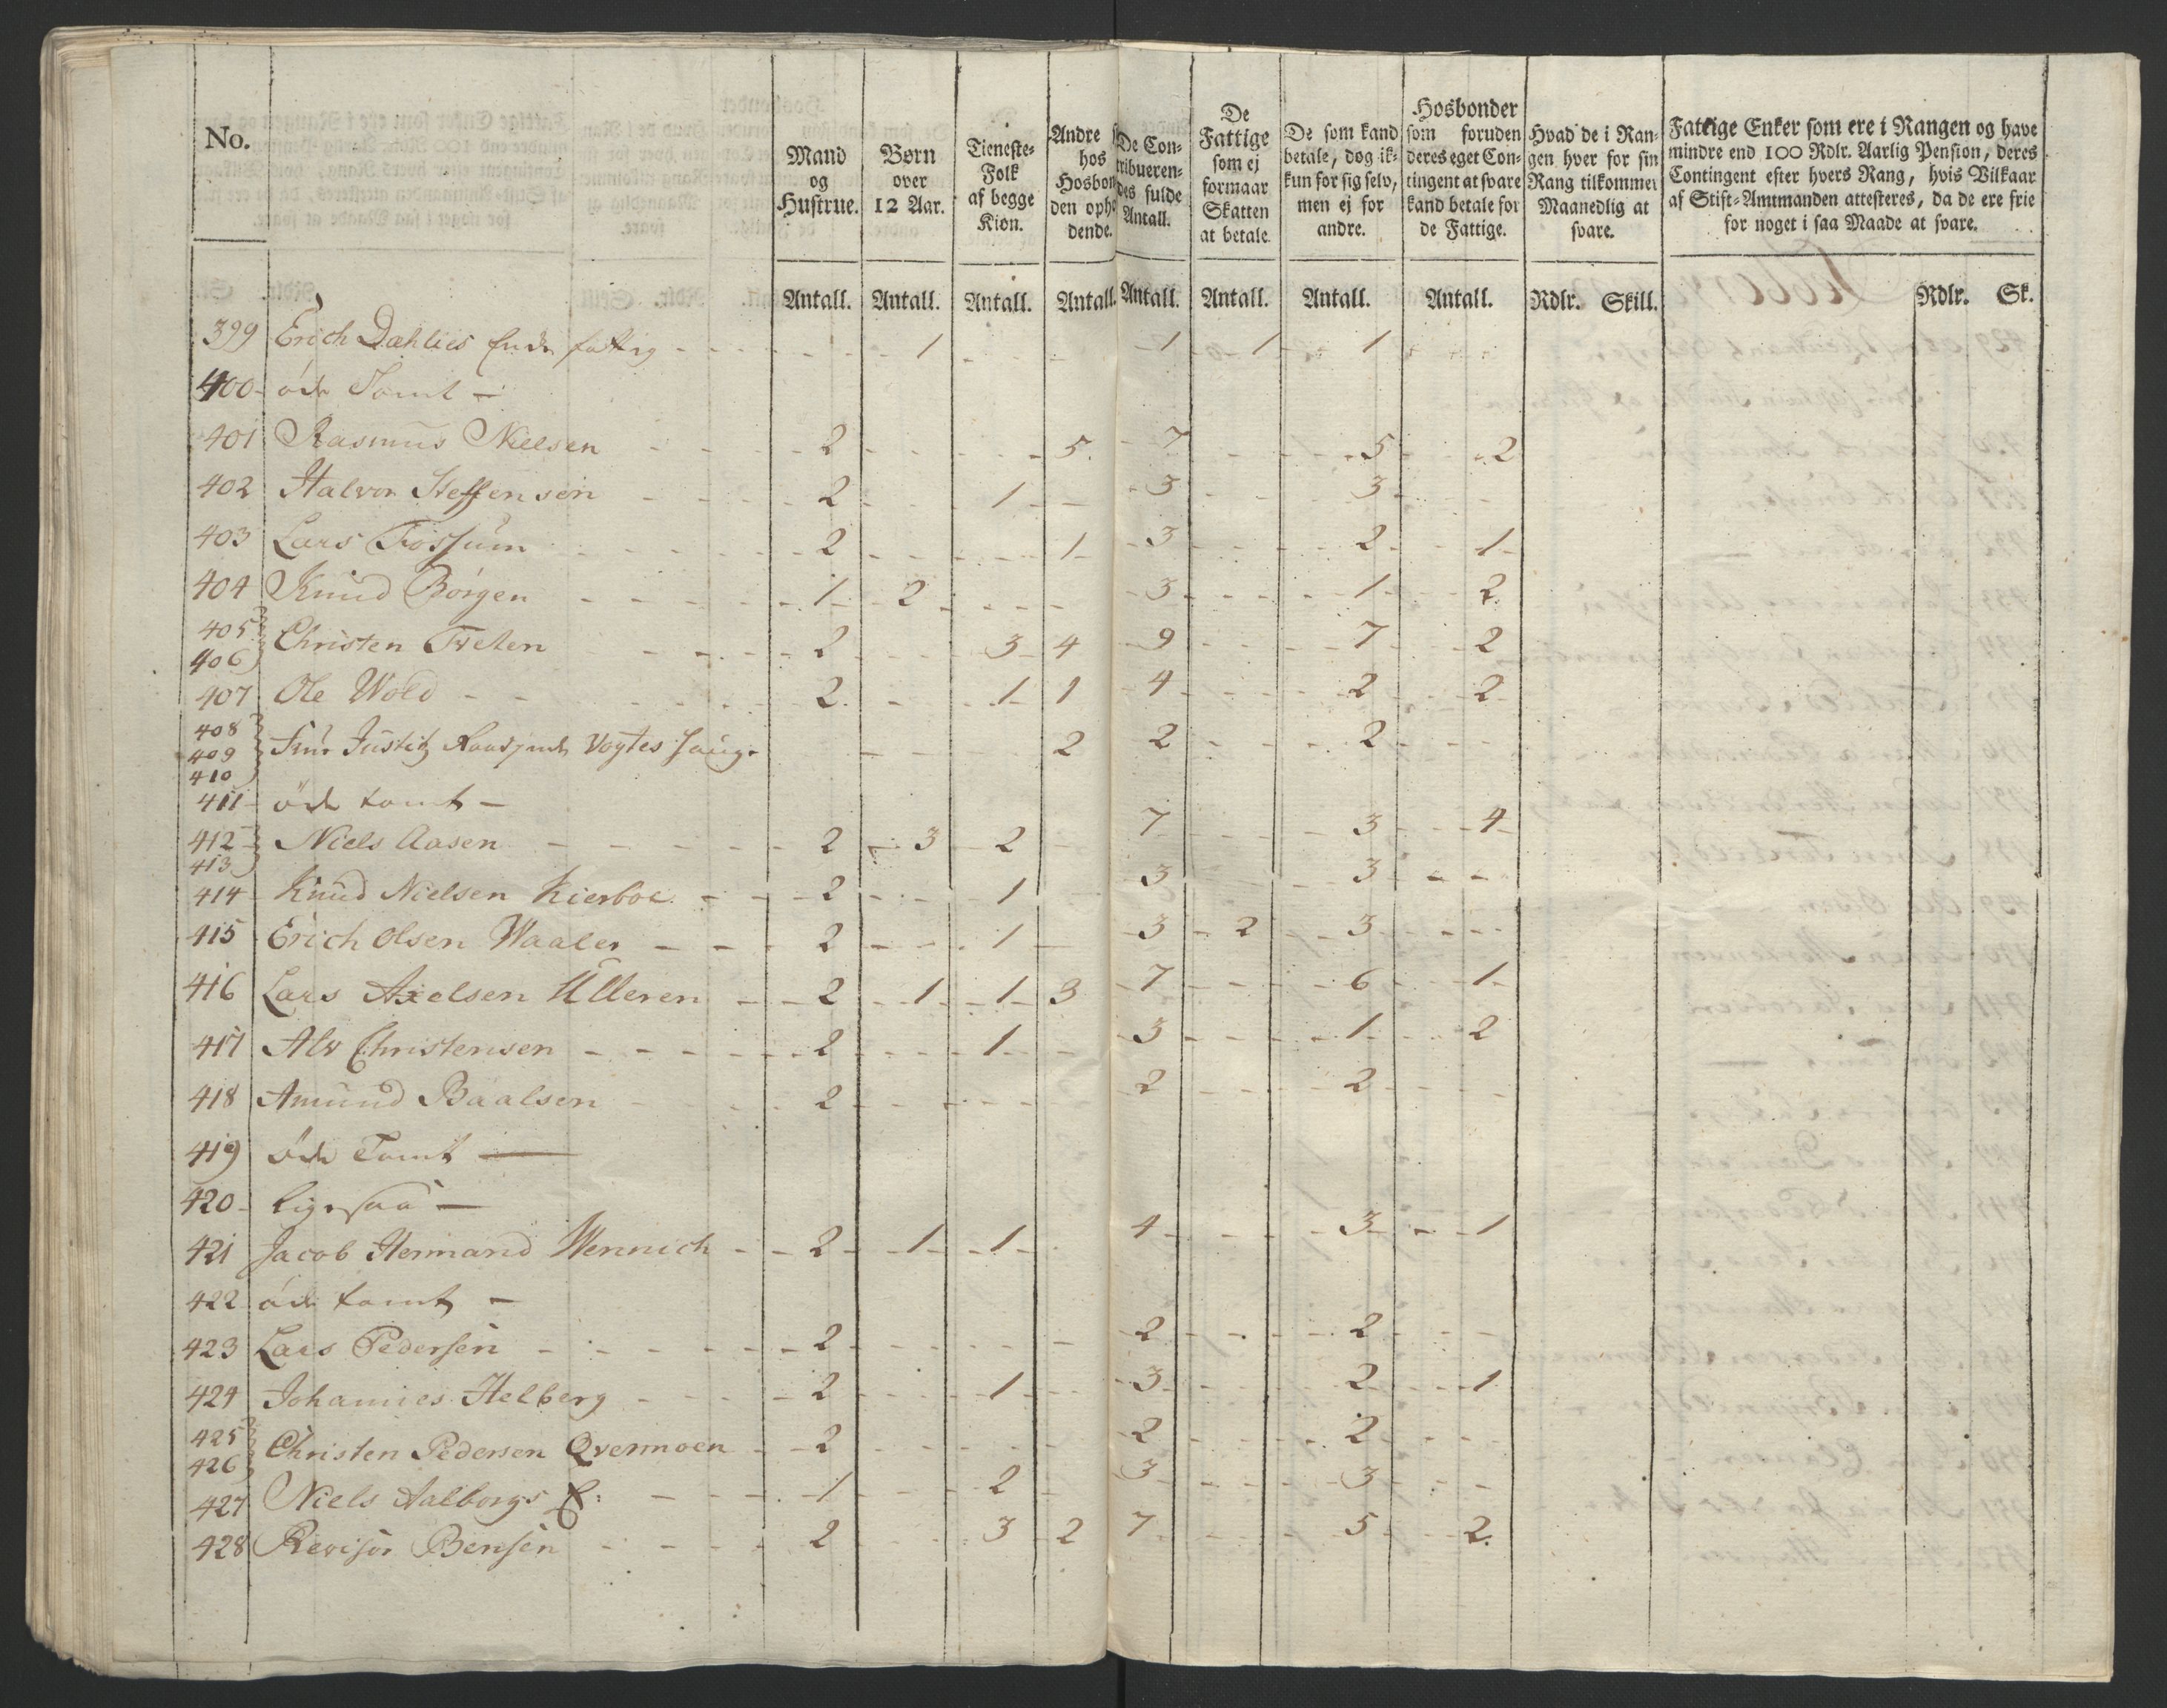 No.
Mand og Hustrue.
Børn over 12 Aar.
Tieneste-Folk af begge Kiøn.
Andre hos Hosbonden ophedende.
De Contribuerendes fulde Antall.
De Fattige som ej formaar Skatten at betale.
De som kand betale, dog ikkun for sig selv, men ej for andre.
Hosbonder som foruden deres eget Contingent at svare kand betale for de Fattige.
Hvad de i Rangen hver for sin Rang tilkommer Maanedlig at svare.
Fattige Enker som ere i Rangen og have mindre end 100 Rdlr. Aarlig Pension, deres Contingent efter hvers Rang, hvis Vilkaar af Stift-Amtmanden attesteres, da de ere frie for noget i saa Maade at svare.
Antall. Antall. Antall. Antall. Antall. Antall. Antall. Antall. Rdlr. Skill. Rdlr. Sk.
399 Erich Dahlies Enke fattig - - 1 - - 1 - 1 - 1
400 - øde Tomt -
401 Rasmus Nielsen - - 2 - - 5. - 7 - - 5 - 2
402 Halvor Steffensen - - 2 - - 1 - - 3 - - 3 - -
403 Lars Fossum - - 2 - - 1 - 3 - - 2 - 1 -
404 Knud Børgen - - 1 - 2 - - 3 - - 1 - 2
405
406 Christen Tveten - - 2 - - 3 - 4 - 9 - - 7 - 2
407 Ole Wold - - 2 - - 1 1 4 - - 2 - 2
408
409 Justitz Vogtes - - 2 2 - - 2 - -
410
411 - øde tomt -
412
413 Niels Aasen - - 2 - 3 - 2 - 7 - - 3 - 4
414 Knud Nielsen Kierboe - - 2 - - 1 3 - - 3 - -
415 Erich Olsen Waaler - - 2 - - 1 - 3 - 2 - 3 - -
416 Lars Axelsen Ulleren - - 2 - 1 - 1 - 3 - 7 - - 6 - 1 -
417 Alv Christensen - - 2 - - 1 - - 3 - - 1 - 2
418 Amund Baalsen - - 2 - - 2 - - 2 - -
419 øde Tomt -
420 - ligesaa -
421 Jacob Hermand Wennich - - 2 - 1 - 1 - 4 - - 3 - 1
422 øde tomt -
423 Lars Pedersen - - 2 - - 2 - - 2 - -
424 Johannes Helberg - - 2 - - 1 - - 3 - - 2 - 1
425
426 Christen Pedersen Qvernmoen - - 2 - - 2 - - 2 - -
427 Niels Aalborgs E: - - 1 - - 2 - 3 - - 3 - -
428 Revisor Bensen - - 2 - - 3 - 2 7 - - 5 - 2.